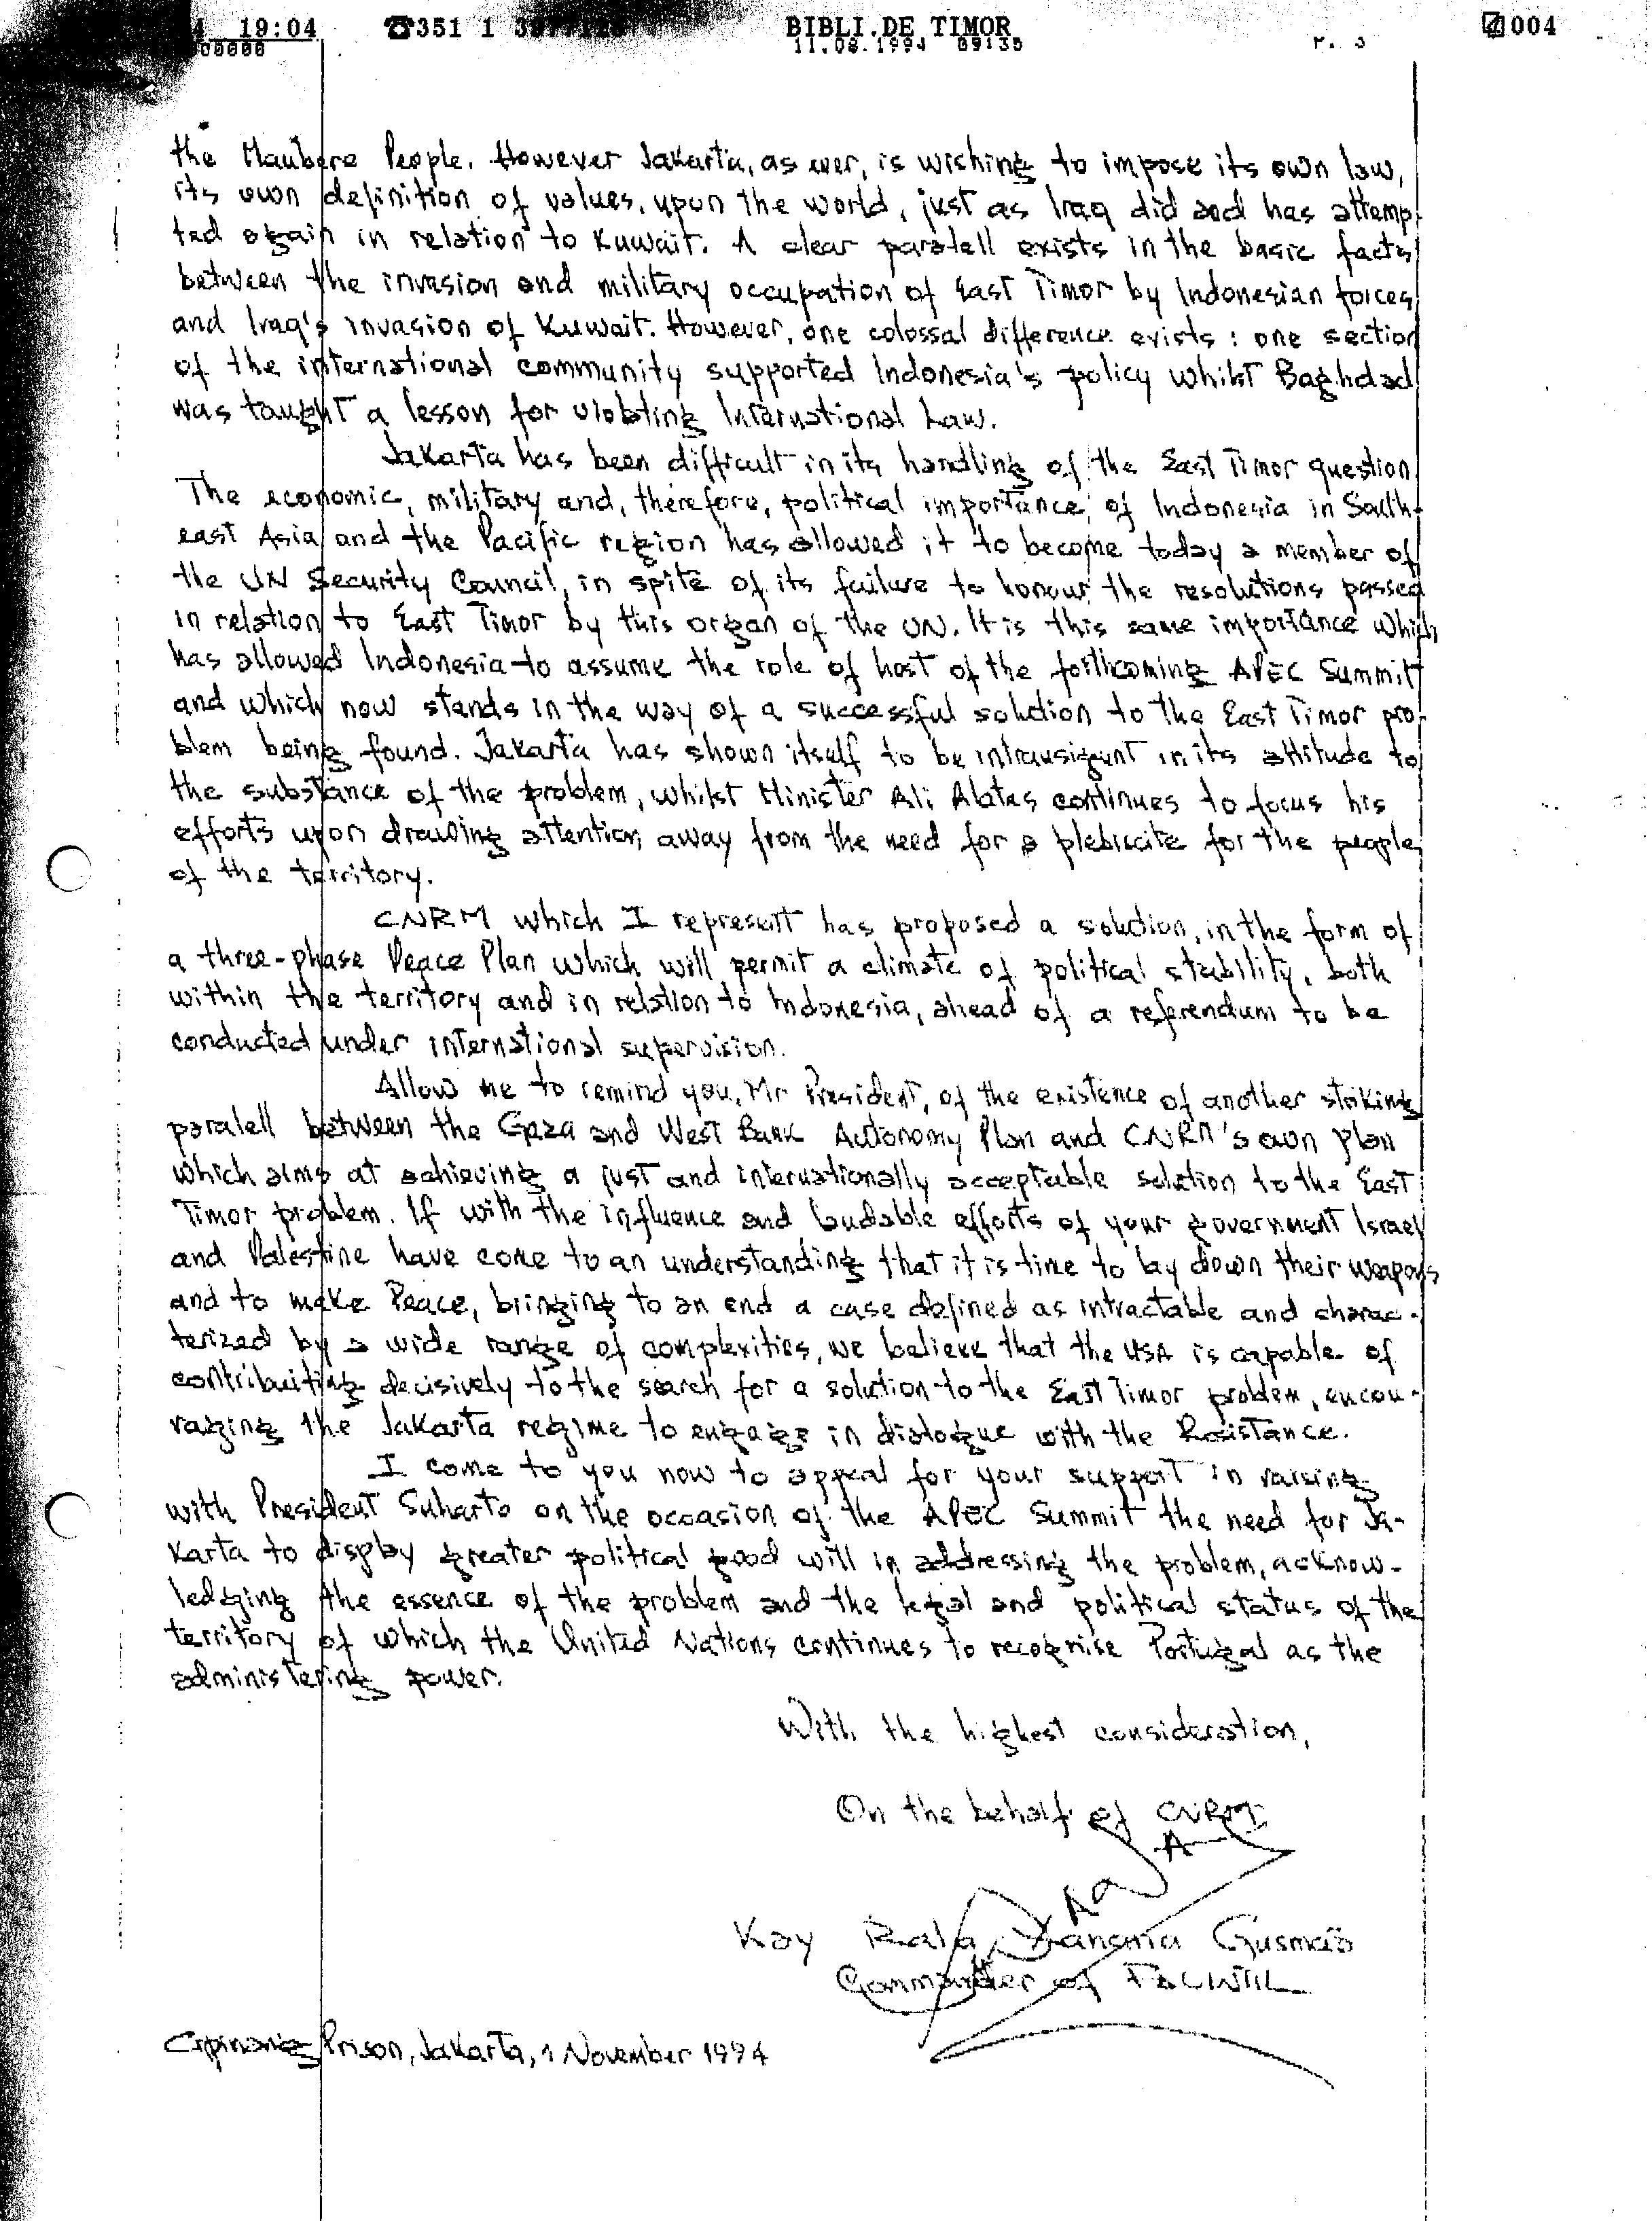 19:04 ☎351 1 BIBLI.DE TIMOR 004
11.08.1994 09:35
the Maubere People. However Jakarta, as ever, is wishing to impose its own law,
its own definition of values, upon the world, just as Iraq did and has attemp-
ted again in relation to Kuwait. A clear paralell exists in the basic facts
between the invasion and military occupation of East Timor by Indonesian forces
and Iraq's invasion of Kuwait. However, one colossal difference exists: one section
of the international community supported Indonesia's policy whilst Baghdad
was taught a lesson for violating International Law.
Jakarta has been difficult in its handling of the East Timor question.
The economic, military and, therefore, political importance, of Indonesia in South-
east Asia and the Pacific region has allowed it to become today a member of
the UN Security Council, in spite of its failure to honour the resolutions passed
in relation to East Timor by this organ of the UN. It is this same importance which
has allowed Indonesia to assume the role of host of the forthcoming APEC Summit
and which now stands in the way of a successful solution to the East Timor pro-
blem being found. Jakarta has shown itself to be intransigent in its attitude to
the substance of the problem, whilst Minister Ali Alatas continues to focus his
efforts upon drawing attention away from the need for a plebiscite for the people
of the territory.
CNRM which I represent has proposed a solution, in the form of
a three-phase Peace Plan which will permit a climate of political stability, both
within the territory and in relation to Indonesia, ahead of a referendum to be
conducted under international supervision.
Allow me to remind you, Mr President, of the existence of another striking
paralell between the Gaza and West Bank Autonomy Plan and CNRM's own plan
which aims at achieving a just and internationally acceptable solution to the East
Timor problem. If with the influence and laudable efforts of your government Israel
and Palestine have come to an understanding that it is time to lay down their weapons
and to make Peace, bringing to an end a case defined as intractable and charac-
terized by a wide range of complexities, we believe that the USA is capable of
contribuiting decisively to the search for a solution to the East Timor problem, encou-
raging the Jakarta regime to engage in dialogue with the Resistance.
I come to you now to appeal for your support in raising
with President Suharto on the occasion of the APEC Summit the need for Ja-
karta to display greater political good will in addressing the problem, acknow-
ledging the essence of the problem and the legal and political status of the
territory of which the United Nations continues to recognise Portugal as the
administering power.
With the highest consideration,
On the behalf of CNRM
Kay Rala Xanana Gusmão
Commander of FALINTIL
Cipinang Prison, Jakarta, 1 November 1994